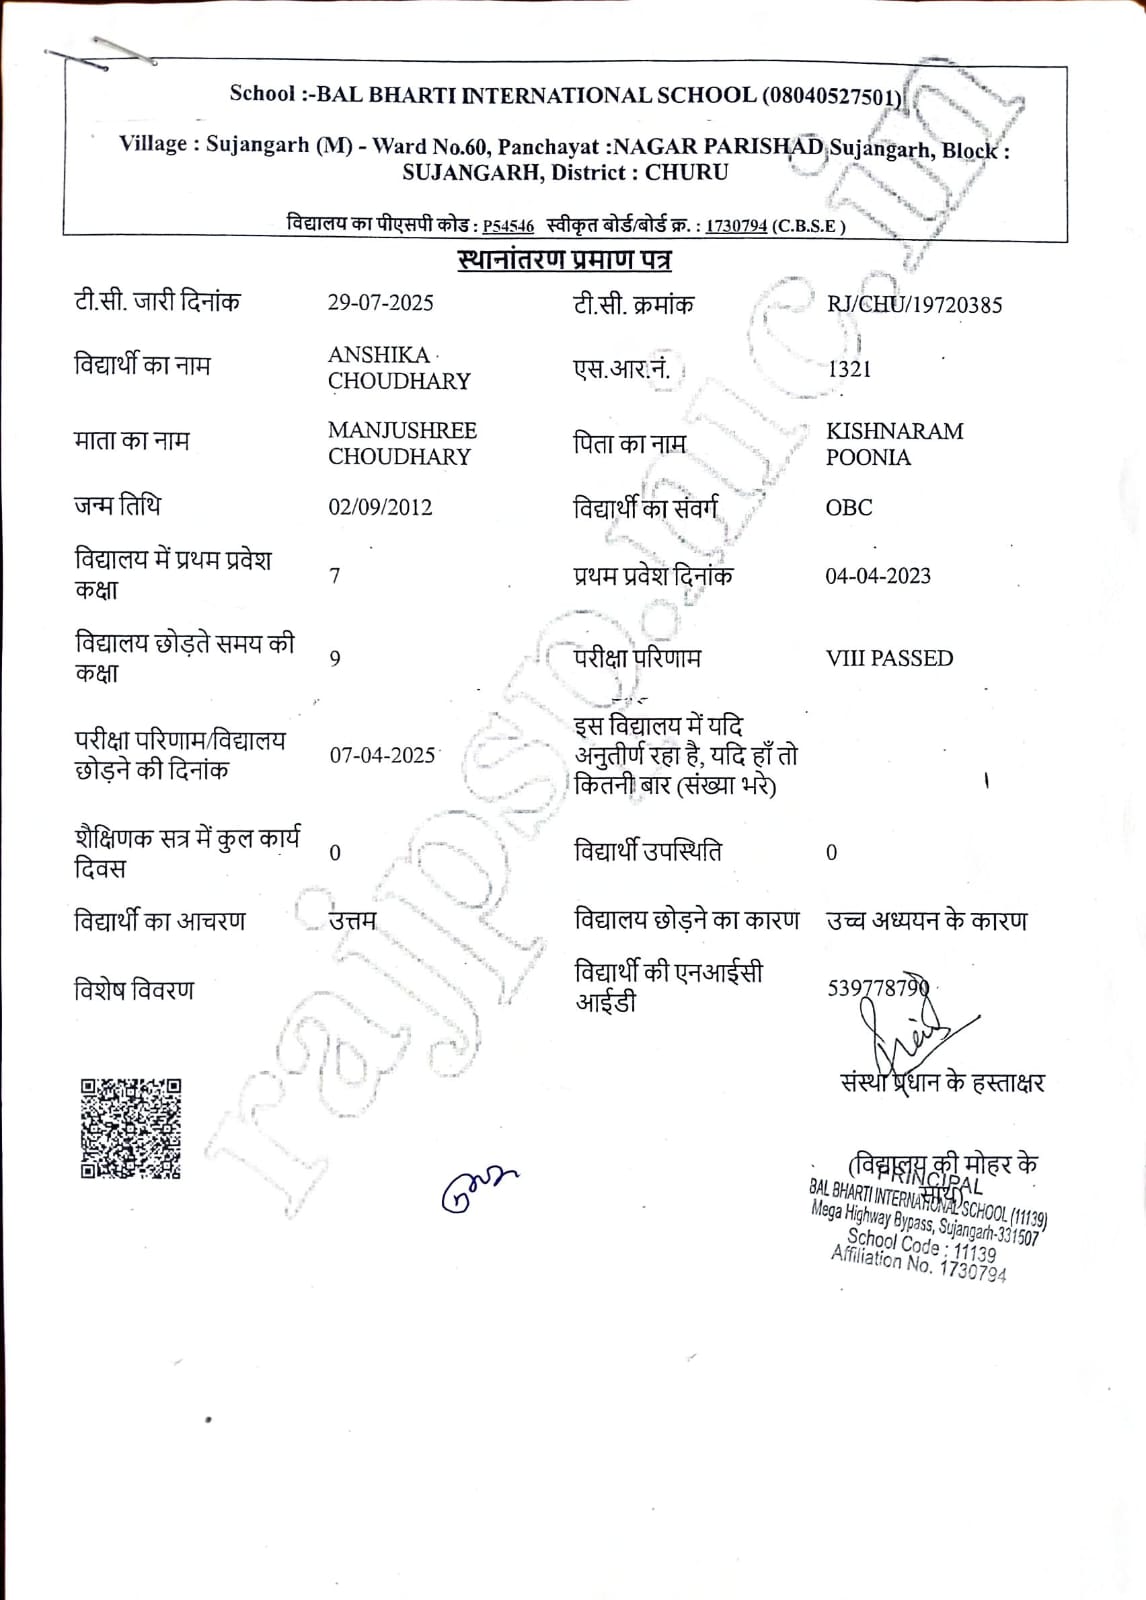 School :-BAL BHARTI INTERNATIONAL SCHOOL (08040527501)
Village : Sujangarh (M) - Ward No.60, Panchayat :NAGAR PARISHAD Sujangarh, Block :
SUJANGARH, District : CHURU
विद्यालय का पीएसपी कोड : P54546 स्वीकृत बोर्ड/बोर्ड क्र. : 1730794 (C.B.S.E )
स्थानांतरण प्रमाण पत्र
टी.सी. जारी दिनांक 29-07-2025 टी.सी. क्रमांक RJ/CHU/19720385
विद्यार्थी का नाम ANSHIKA CHOUDHARY एस.आर.नं. 1321
माता का नाम MANJUSHREE CHOUDHARY पिता का नाम KISHNARAM POONIA
जन्म तिथि 02/09/2012 विद्यार्थी का संवर्ग OBC
विद्यालय में प्रथम प्रवेश कक्षा 7 प्रथम प्रवेश दिनांक 04-04-2023
विद्यालय छोड़ते समय की कक्षा 9 परीक्षा परिणाम VIII PASSED
परीक्षा परिणाम/विद्यालय छोड़ने की दिनांक 07-04-2025 इस विद्यालय में यदि अनुतीर्ण रहा है, यदि हाँ तो कितनी बार (संख्या भरे)
शैक्षिणक सत्र में कुल कार्य दिवस 0 विद्यार्थी उपस्थिति 0
विद्यार्थी का आचरण उत्तम विद्यालय छोड़ने का कारण उच्च अध्ययन के कारण
विशेष विवरण विद्यार्थी की एनआईसी आईडी 539778790
संस्था प्रधान के हस्ताक्षर
(विद्यालय की मोहर के
साथ)
PRINCIPAL
BAL BHARTI INTERNATIONAL SCHOOL (11139)
Mega Highway Bypass, Sujangarh-331507
School Code : 11139
Affiliation No. 1730794
rajpsp.nic.in